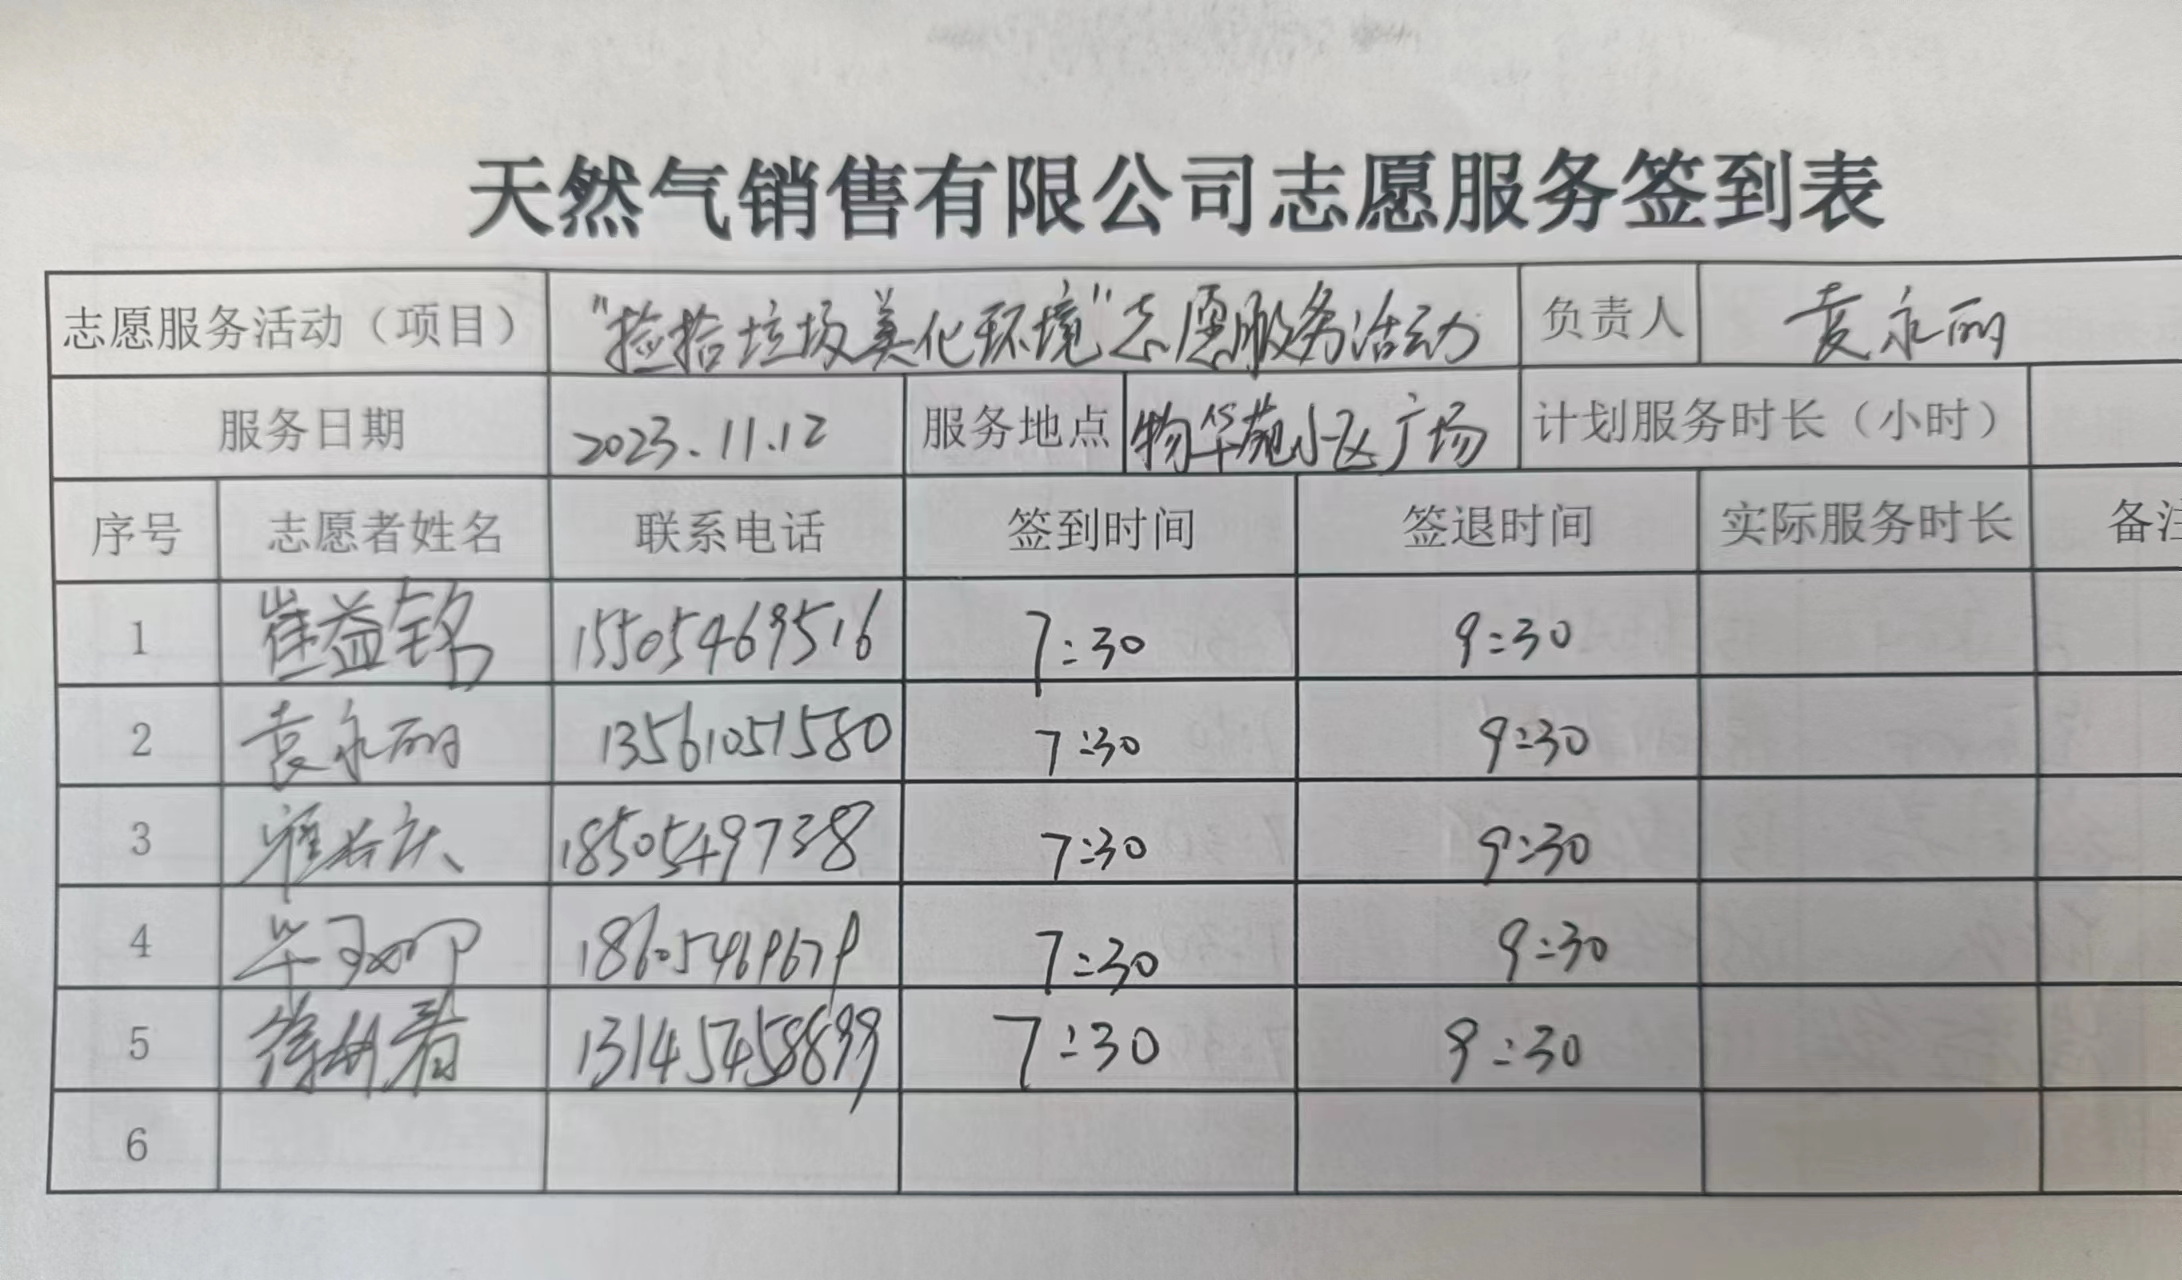 天然气销售有限公司志愿服务签到表
志愿服务活动（项目） "捡拾垃圾美化环境"志愿服务活动 负责人 袁永丽
服务日期 2023.11.12 服务地点 物华苑小区广场 计划服务时长（小时）
序号 志愿者姓名 联系电话 签到时间 签退时间 实际服务时长 备注
1 崔益铭 15505469516 7:30 9:30
2 袁永丽 13561051580 7:30 9:30
3 18505497338 7:30 9:30
4 18605469679 7:30 9:30
5 13145458899 7:30 9:30
6